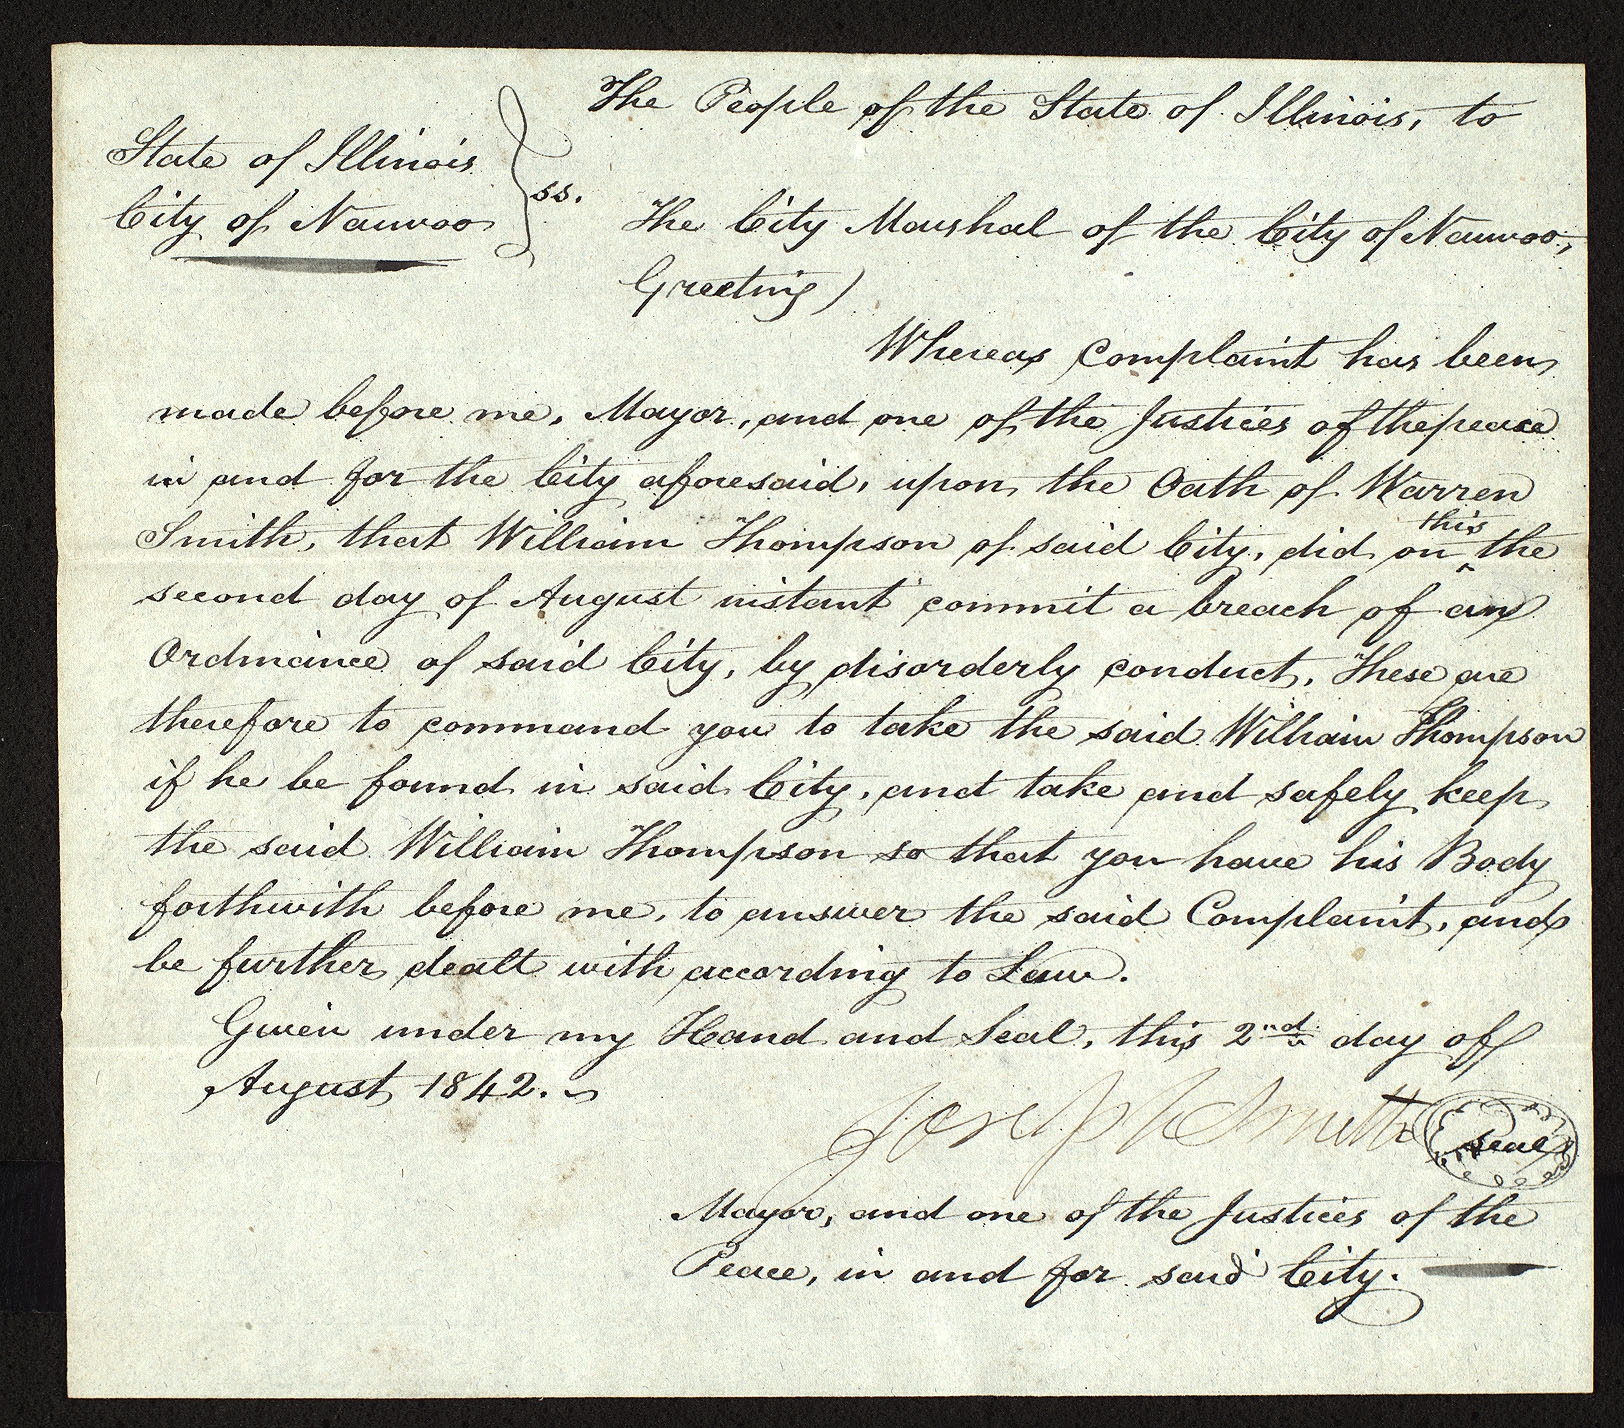 The People of the State of Illinois, to
State of Illinois
City of Nauvoo } ss.
The City Marshal of the City of Nauvoo,
Greeting)
Whereas complaint has been
made before me, Mayor, and one of the Justices of the peace
in and for the City aforesaid, upon the Oath of Warren
Smith, that William Thompson of said City, did on ^this the
second day of August instant commit a breach of an
Ordinance of said City, by disorderly conduct, These are
therefore to command you to take the said William Thompson
if he be found in said City, and take and safely keep
the said William Thompson so that you have his Body
forthwith before me, to answer the said Complaint, and
be further dealt with according to Law.
Given under my Hand and Seal, this 2nd day of
August 1842.
Joseph Smith Seal
Mayor, and one of the Justices of the
Peace, in and for said City.